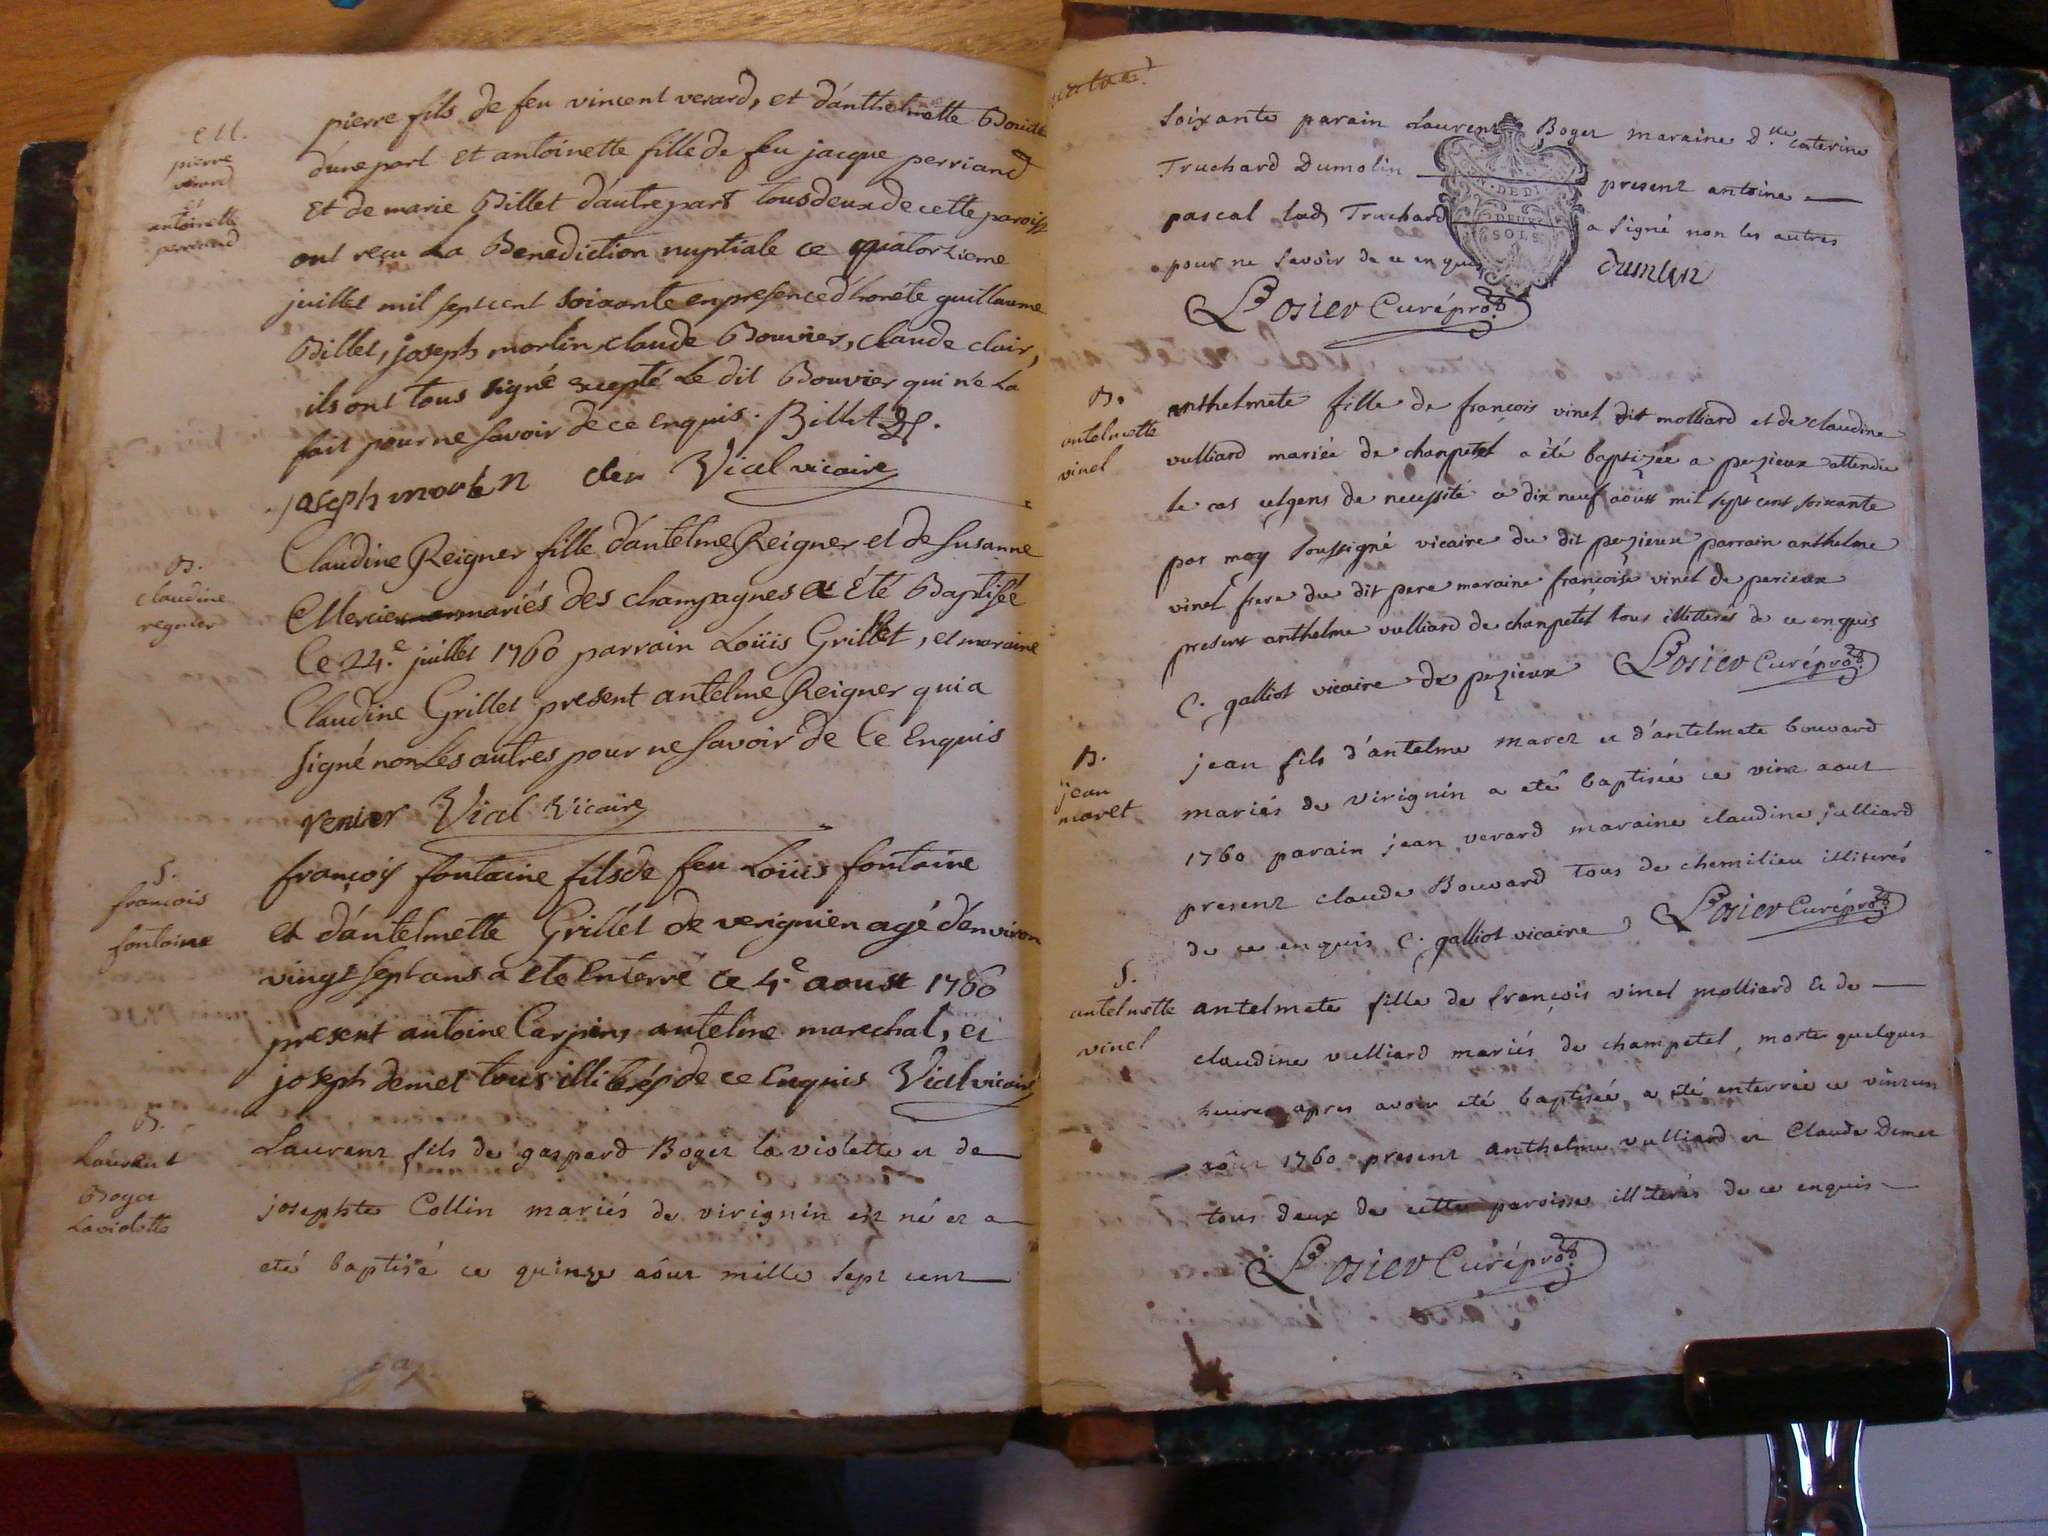 M.
pierre
verard
et
antoinette
perriand
pierre fils de feu vincent verard, et d'anthelmette
d'une part et antoinette fille de feu jacque perriand
Et de marie Billet d'autre part tous deux de cette paroisse
ont reçu La Benediction nuptiale ce quatorzieme
juillet mil sept cent soixante en presence d'honéte guillaume
Billet, joseph morlin, claude Bouvier, claude clair,
ils ont tous signé excepté Le dit Bouvier qui ne La
fait pour ne savoir de ce enquis. Billet
joseph morlin cler Vial vicaire
B.
claudine
regnier
Claudine Reigner fille d'antelme Reigner et de susanne
Mercier mariés des champagnes a Eté Baptisée
Ce 24.e juillet 1760 parrain Loüis Grillet, et maraine
Claudine Grillet present antelme Reigner qui a
signé non Les autres pour ne savoir de Ce Enquis
renier Vial Vicaire
S.
francois
fontaine
françois fontaine fils de feu Loüis fontaine
et d'antelmette Grillet de verignien agé d'environ
vingt sept ans a ete Enterré ce 4.e aoust 1760
present antoine Carpin, antelme marechal, et
joseph demet tous illiterés de ce Enquis Vial vicaire
B.
Laurent
Boget
Laviolette
Laurent fils de gaspard Boget la violette et de
josephte Collin mariés de virignin est né et a
eté baptisé ce quinze aôut mille sept cent
soixante parain Laurent Boget maraine D.lle caterine
Truchard Dumolin present antoine
pascal lad. Truchard a signé non les autres
pour ne savoir de ce enquis dumolin
Losier Curé
B.
antelmette
vinel
anthelmete fille de françois vinel dit molliard et de claudine
vulliard mariée de champetel a été baptizée a pezieux attendu
le cas urgens de necessité a dix neuf aoust mil sept cent soixante
par moy soussigné vicaire du dit pezieux parrain anthelme
vinel frere du dit pere maraine françoise vinel de perieux
present anthelme vulliard de champetel tous illitterés de ce enquis
C. galliot vicaire de pezieux Losier Curé
B.
jean
maret
jean fils d'antelme maret et d'antelmete bouvard
mariés de virignin a eté baptisée ce vint aout
1760 parain jean verard maraine claudine julliard
present claude Bouvard tous de chemilieu illiterés
de ce enquis C. galliot vicaire Losier Curé
S.
antelmette
vinel
antelmete fille de françois vinel molliard et de
claudine vulliard mariés de champetel, morte quelques
heures apres avoir eté baptisée, a été enterrée ce vint un
aôut 1760 present anthelme vulliard et Claude Demet
tous deux de cette paroisse illiterés de ce enquis
Losier Curé
DEUX
SOLS